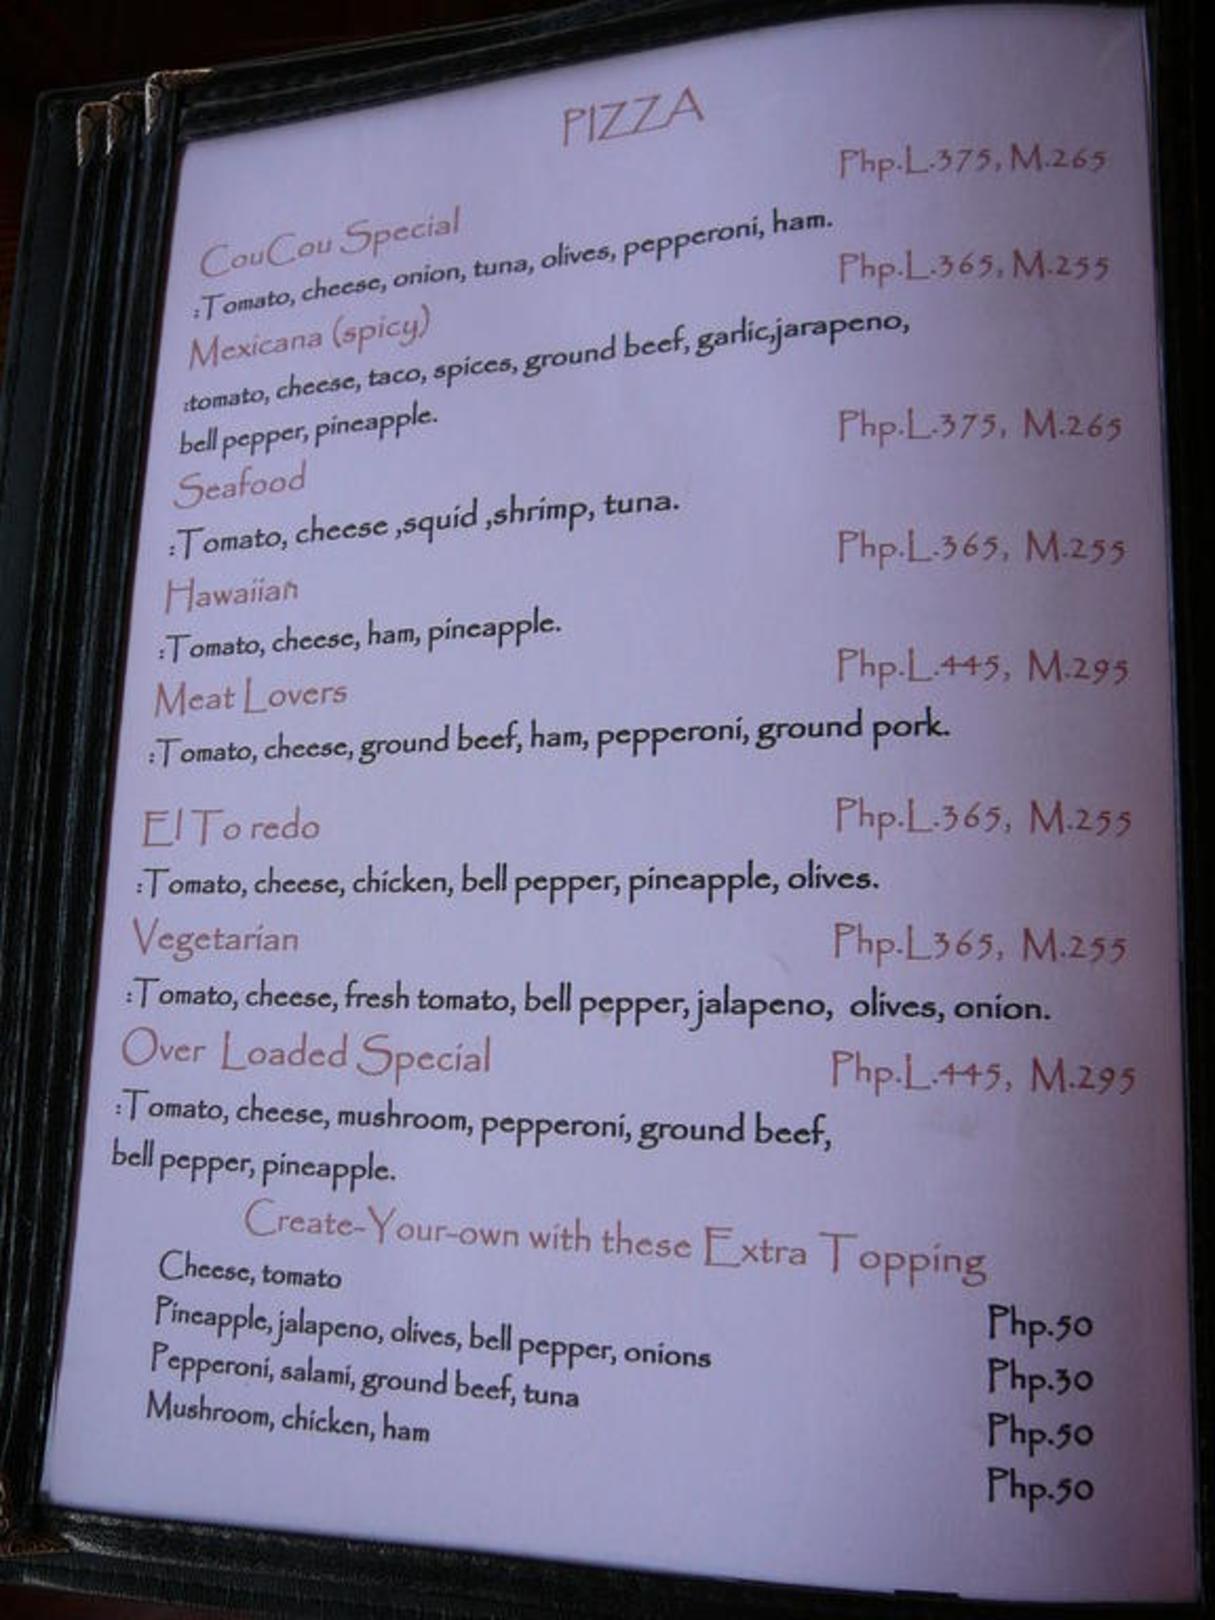 PIZZA
Php.L.375, M.265
CouCou Special
:Tomato, cheese, onion, tuna, olives, pepperoni, ham.
Php.L.365, M.255
Mexicana (spicy)
:tomato, cheese, taco, spices, ground beef, garlic,jarapeno,
bell pepper, pineapple.
Php.L.375, M.265
Seafood
:Tomato, cheese ,squid ,shrimp, tuna.
Php.L.365, M.255
Hawaiian
:Tomato, cheese, ham, pineapple.
Php.L.445, M.295
Meat Lovers
:Tomato, cheese, ground beef, ham, pepperoni, ground pork.
El To redo Php.L.365, M.255
:Tomato, cheese, chicken, bell pepper, pineapple, olives.
Vegetarian Php.L365, M.255
:Tomato, cheese, fresh tomato, bell pepper, jalapeno, olives, onion.
Over Loaded Special Php.L.445, M.295
:Tomato, cheese, mushroom, pepperoni, ground beef,
bell pepper, pineapple.
Create-Your-own with these Extra Topping
Cheese, tomato Php.50
Pineapple, jalapeno, olives, bell pepper, onions Php.30
Pepperoni, salami, ground beef, tuna Php.50
Mushroom, chicken, ham Php.50